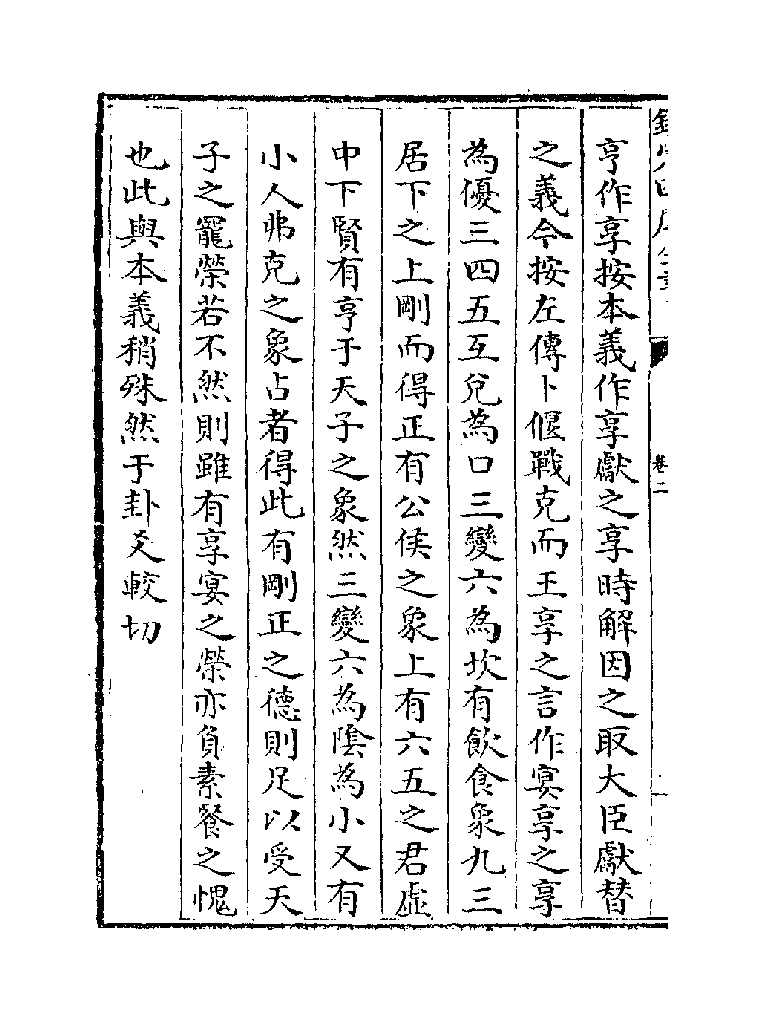 亨作享按本義作享獻之享時解因之取大臣獻替
之義今按左傳卜偃戰克而王享之言作宴享之享
為優三四五互兌為口三變六為坎有飲食象九三
居下之上剛而得正有公侯之象上有六五之君虛
中下賢有亨于天子之象然三變六為陰為小又有
小人弗克之象占者得此有剛正之德則足以受天
子之寵榮若不然則雖有享宴之榮亦負素餐之愧
也此與本義稍殊然于卦爻較切
卷二